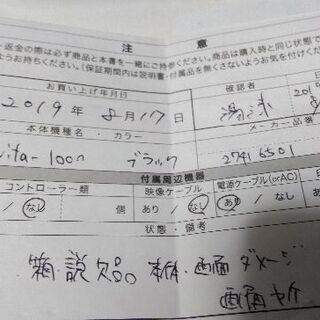 注 意
・返金の際は必ず商品と本書を一緒にご持参ください。商品は購入時と同じ状態で
ようお持ちください。(保証期間内は説明書・付属品を無くさないようお気を付けくだ
お買い上げ年月日
確認者
2019年 8月17日
201
本体機種名・カラー
メーカー品番
ita-1000 ブラック
27416501
付属周辺機器
コントローラー類
映像ケーブル
電源ケーブル(orAC)
/ なし 個
あり / なし
あり / なし
状態・備考
箱・説欠品 本体・画面ダメージ
画面ヤケ